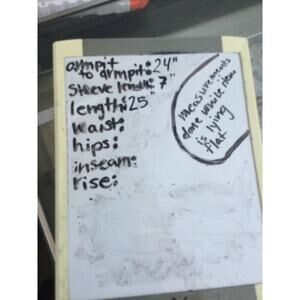 armpit
to armpit: 24"
Sleeve length: 7"
length: 25
waist:
hips:
inseam:
rise:
measurements
done while item
is lying
flat